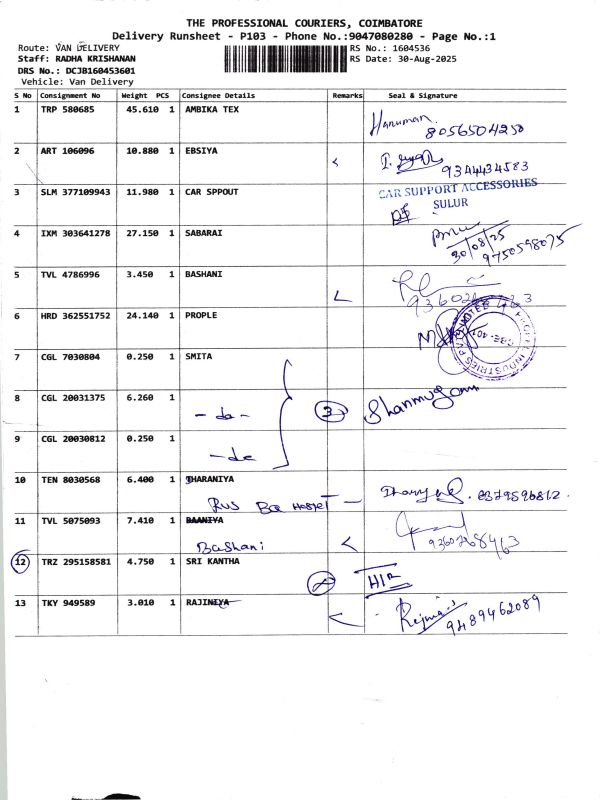 THE PROFESSIONAL COURIERS, COIMBATORE
Delivery Runsheet - P103 - Phone No.:9047080280 - Page No.:1
Route: VAN DELIVERY RS No.: 1604536
Staff: RADHA KRISHANAN RS Date: 30-Aug-2025
DRS No.: DCJB160453601
Vehicle: Van Delivery
S No Consignment No Weight PCS Consignee Details Remarks Seal & Signature
1 TRP 580685 45.610 1 AMBIKA TEX
Hanuman.
8056504250
2 ART 106096 10.880 1 EBSIYA
9344434583
3 SLM 377109943 11.980 1 CAR SPPOUT
CAR SUPPORT ACCESSORIES
SULUR
4 IXM 303641278 27.150 1 SABARAI
30/08/25
9750598075
5 TVL 4786996 3.450 1 BASHANI
6 HRD 362551752 24.140 1 PROPLE
7 CGL 7030804 0.250 1 SMITA
8 CGL 20031375 6.260 1
- do - 3 Shanmugam
9 CGL 20030812 0.250 1
- do
10 TEN 8030568 6.400 1 DHARANIYA
Hostel
11 TVL 5075093 7.410 1 BAANIYA
Bashani 9360268463
12 TRZ 295158581 4.750 1 SRI KANTHA
H/R
13 TKY 949589 3.010 1 RAJINIYA
9489462089